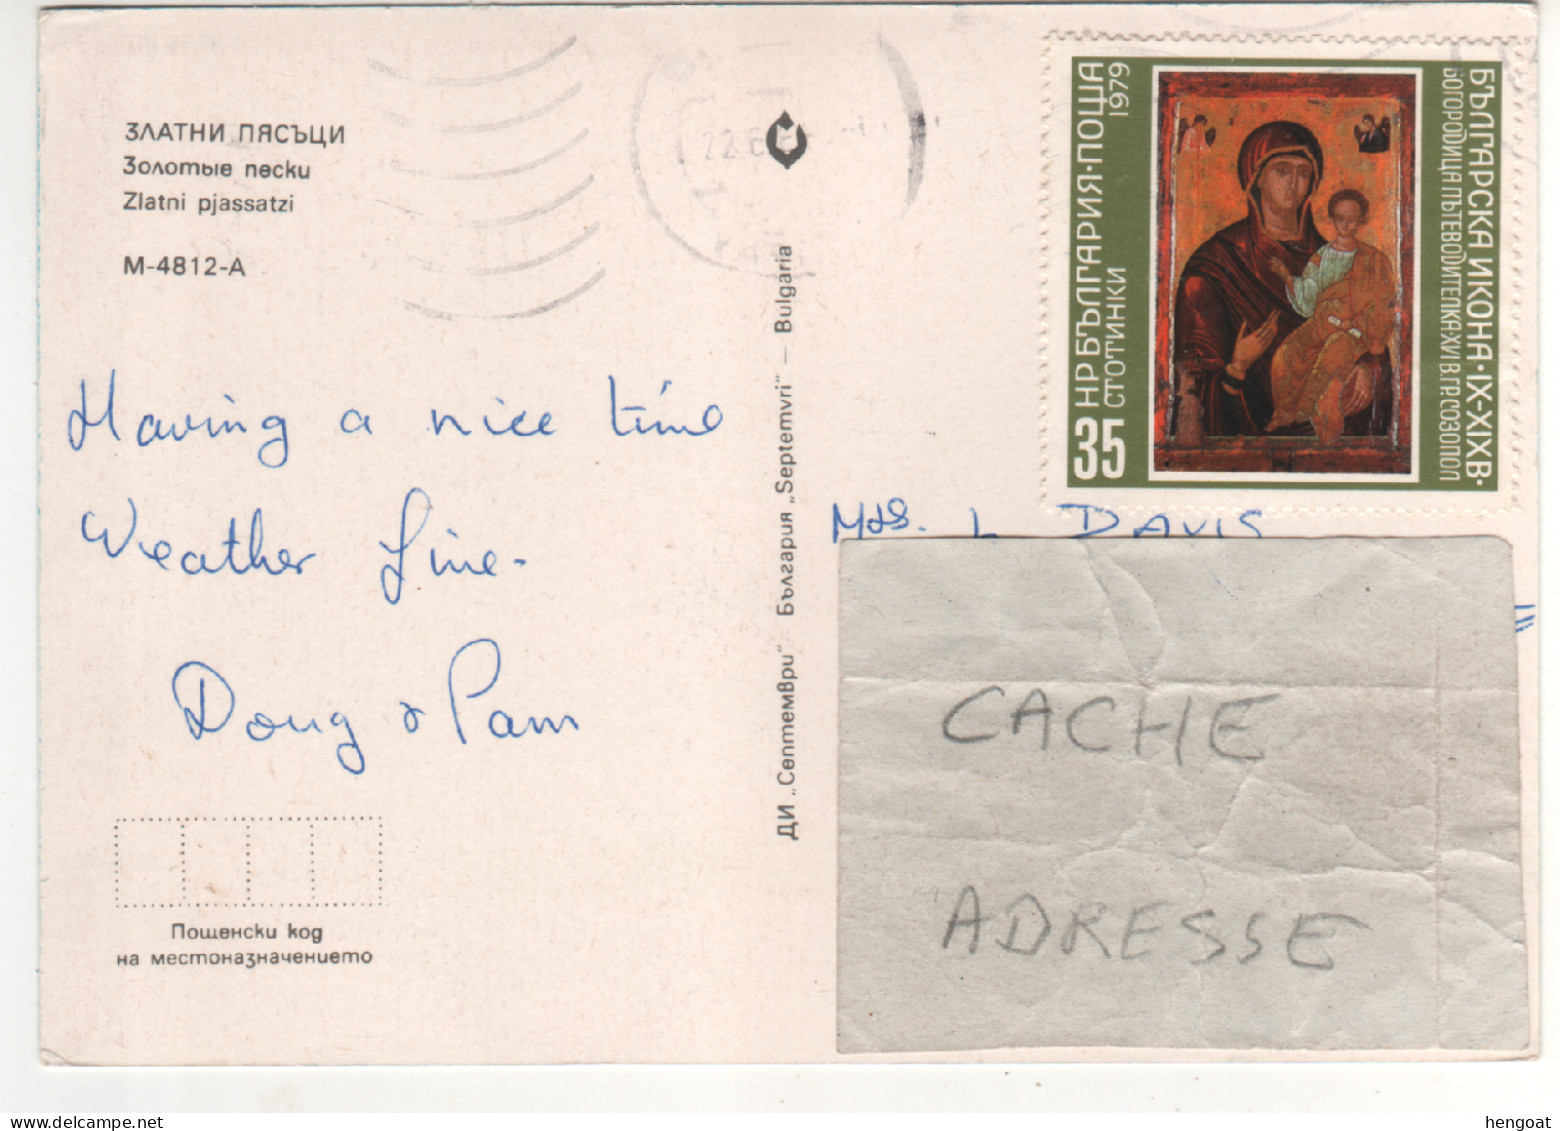 ЗЛАТНИ ПЯСЪЦИ
Золотые пески
Zlatni pjassatzi
М-4812-А
Having a nice time
Weather fine.
Doug & Pam
Пощенски код
на местоназначението
ДИ „Септември" България „Septemvri" — Bulgaria
22.6
35 НР БЪЛГАРИЯ·ПОЩА
СТОТИНКИ 1979
БЪЛГАРСКА ИКОНА·IX-XIXВ·
БОГОРОДИЦА ПЪТЕВОДИТЕЛКА·XVIВ.ГР.СОЗОПОЛ
Mrs. L DAVIS
CACHE
ADRESSE
hengoat